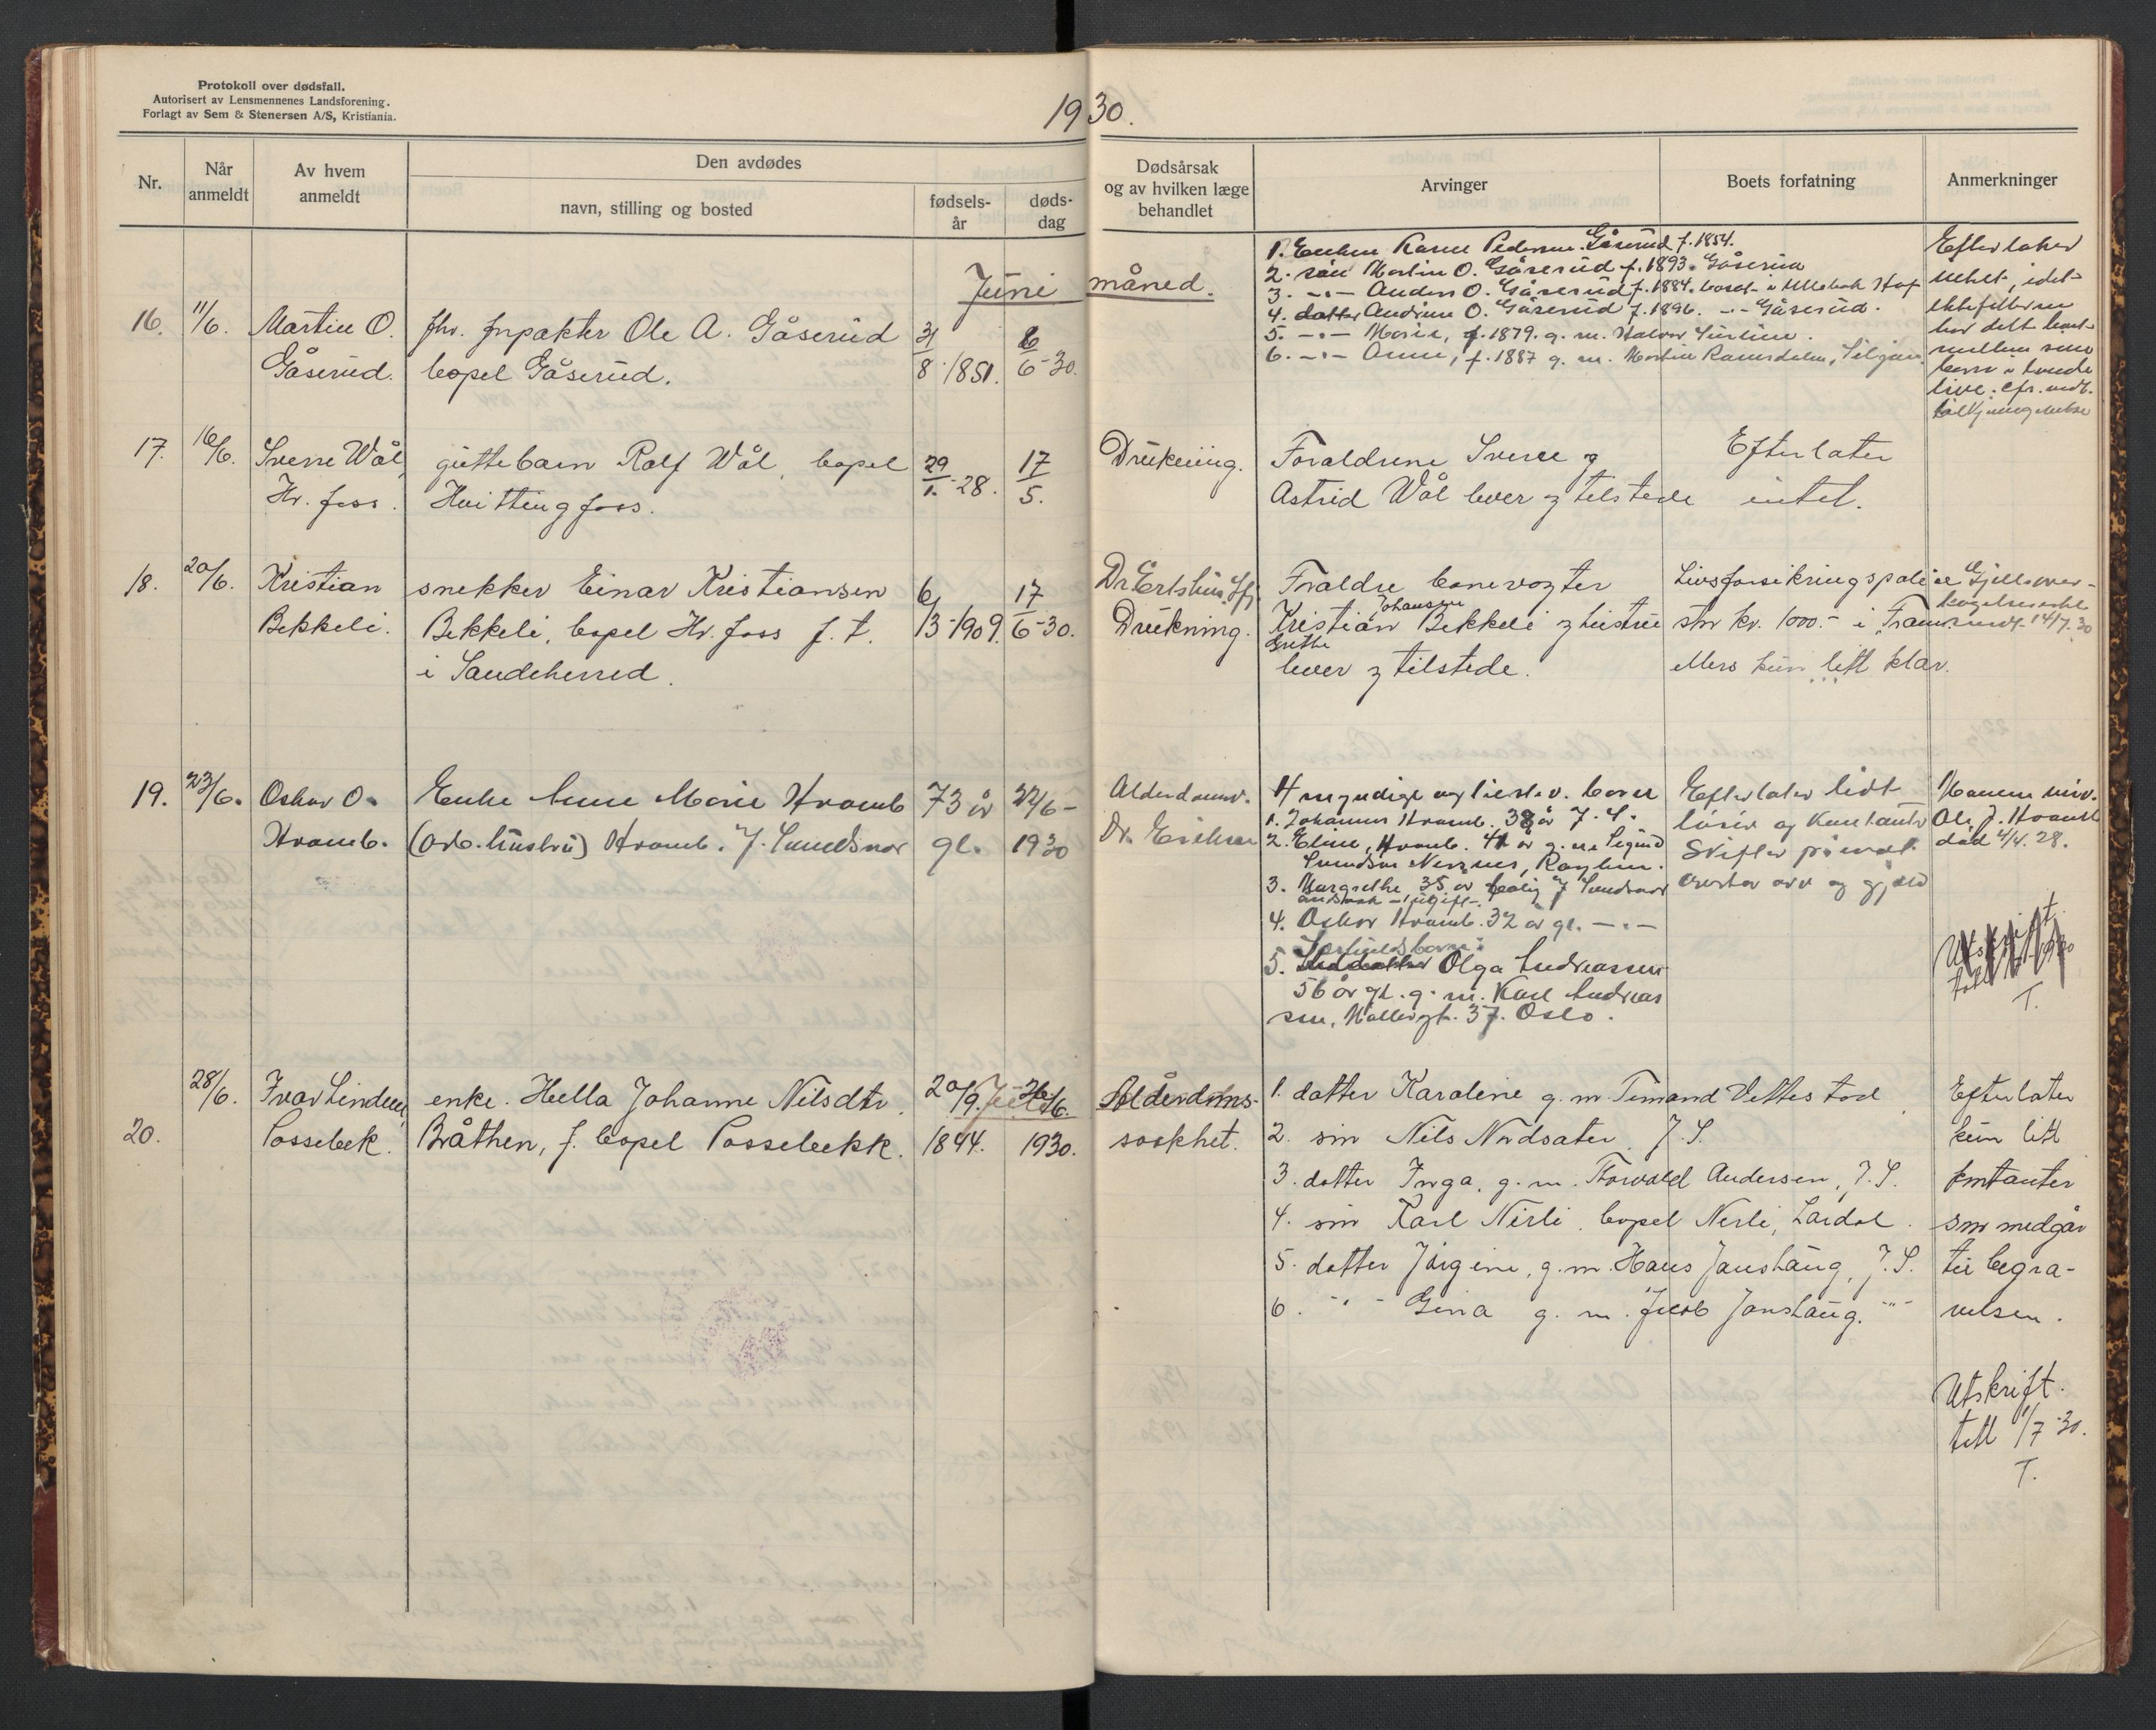 Protokoll over dødsfall.
Autorisert av Lensmennenes Landsforening.
Forlagt av Sem & Stenersen A/S, Kristiania.
1930.
Nr.
Når anmeldt
Av hvem anmeldt
Den avdødes
navn, stilling og bosted
fødsels-år
døds-dag
Dødsårsak og av hvilken læge behandlet
Arvinger
Boets forfatning
Anmerkninger
Juni måned.
16. 11/6. Martin O. Gåserud.
fhv. forpakter Ole A. Gåserud
bopel Gåserud.
31/8-1851. 6/6-30.
1. Enken Karen Pedersen Gåserud f. 1854.
2. søn Martin O. Gåserud f. 1893. Gåserud
3. -"- Anders O. Gåserud f. 1884. bosat i
4. datter Andrine O. Gåserud f. 1896. -"- Gåserud.
5. -"- Marie, f. 1879. g. m. Halvor
6. -"- Anne, f. 1887 g. m. Martin Ramsdalen, Siljan.
Efterlater
intet, idet
har delt
mellem sine
barn i levende
live. cfr. vedt.
17. 16/6. Sverre Wål
Hv. foss.
guttebarn Rolf Wål, bopel
Hvittingfoss.
29/1-28. 17/5.
Drukning.
Foraldrene Sverre og
Astrid Wål lever og tilstede
Efterlater
intet.
18. 20/6. Kristian
Bekkeli.
snekker Einar Kristiansen
Bekkeli, bopel Hv. foss f. t.
i Sandeherred.
6/3-1909. 17/6-30.
Drukning.
Foraldre banevogter
Johansen
Kristian Bekkeli og hustru
Grethe
lever og tilstede.
Livsforsikringspolise
stor kr. 1000.- i Fram
ellers kun litt klær.
14/7.30
19. 23/6. Oskar O.
Hvamb.
Enke Anne Marie Hvamb
(arb. hustru) Hvamb. Y. Sandsvær
73 år gl. 22/6-1930
Alderdomsv.
Dr. Eriksen
4 myndige og tilstedev. barn
1. Johannes Hvamb. 38 år Y. S.
2. Eline, Hvamb. 41 år g. m. Sigurd
3. Margrethe 35 år bolig Y Sandsvær
- ugift -
4. Oskar Hvamb. 32 år gl. -"-
Særkuldsbarn:
5. Olga Andreassen
56 år gl. g. m. Karl Andreas
sen, Møllergt. 37. Oslo.
Efterlater lidt
løsøre og kontanter
Skifter privat
overtar arv og gjeld
Manden
Ole J. Hvamb
død 4/4. 28.
T.
20. 28/6. Ivar Lindem,
Possebek.
enke. Hella Johanne Nilsdtr.
Bråthen, f. bopel Possebekk.
20/9. 1844. 26/6. 1930.
Alderdoms-
svakhet.
1. datter Karoline g. m. Timand Vettestad
2. søn Nils Nordsater Y. S.
3. datter Inga, g. m. Torvald Andersen, Y. S.
4. søn Karl Nerli, bopel Nerli, Lardal.
5. datter Jørgine, g. m. Hans Janshaug, Y. S.
6. -"- Gina g. m. Jacob Janshaug. -"-
Efterlater
kun litt
kontanter
som medgår
til begra-
velsen.
Utskrift
tatt 1/7-30.
T.